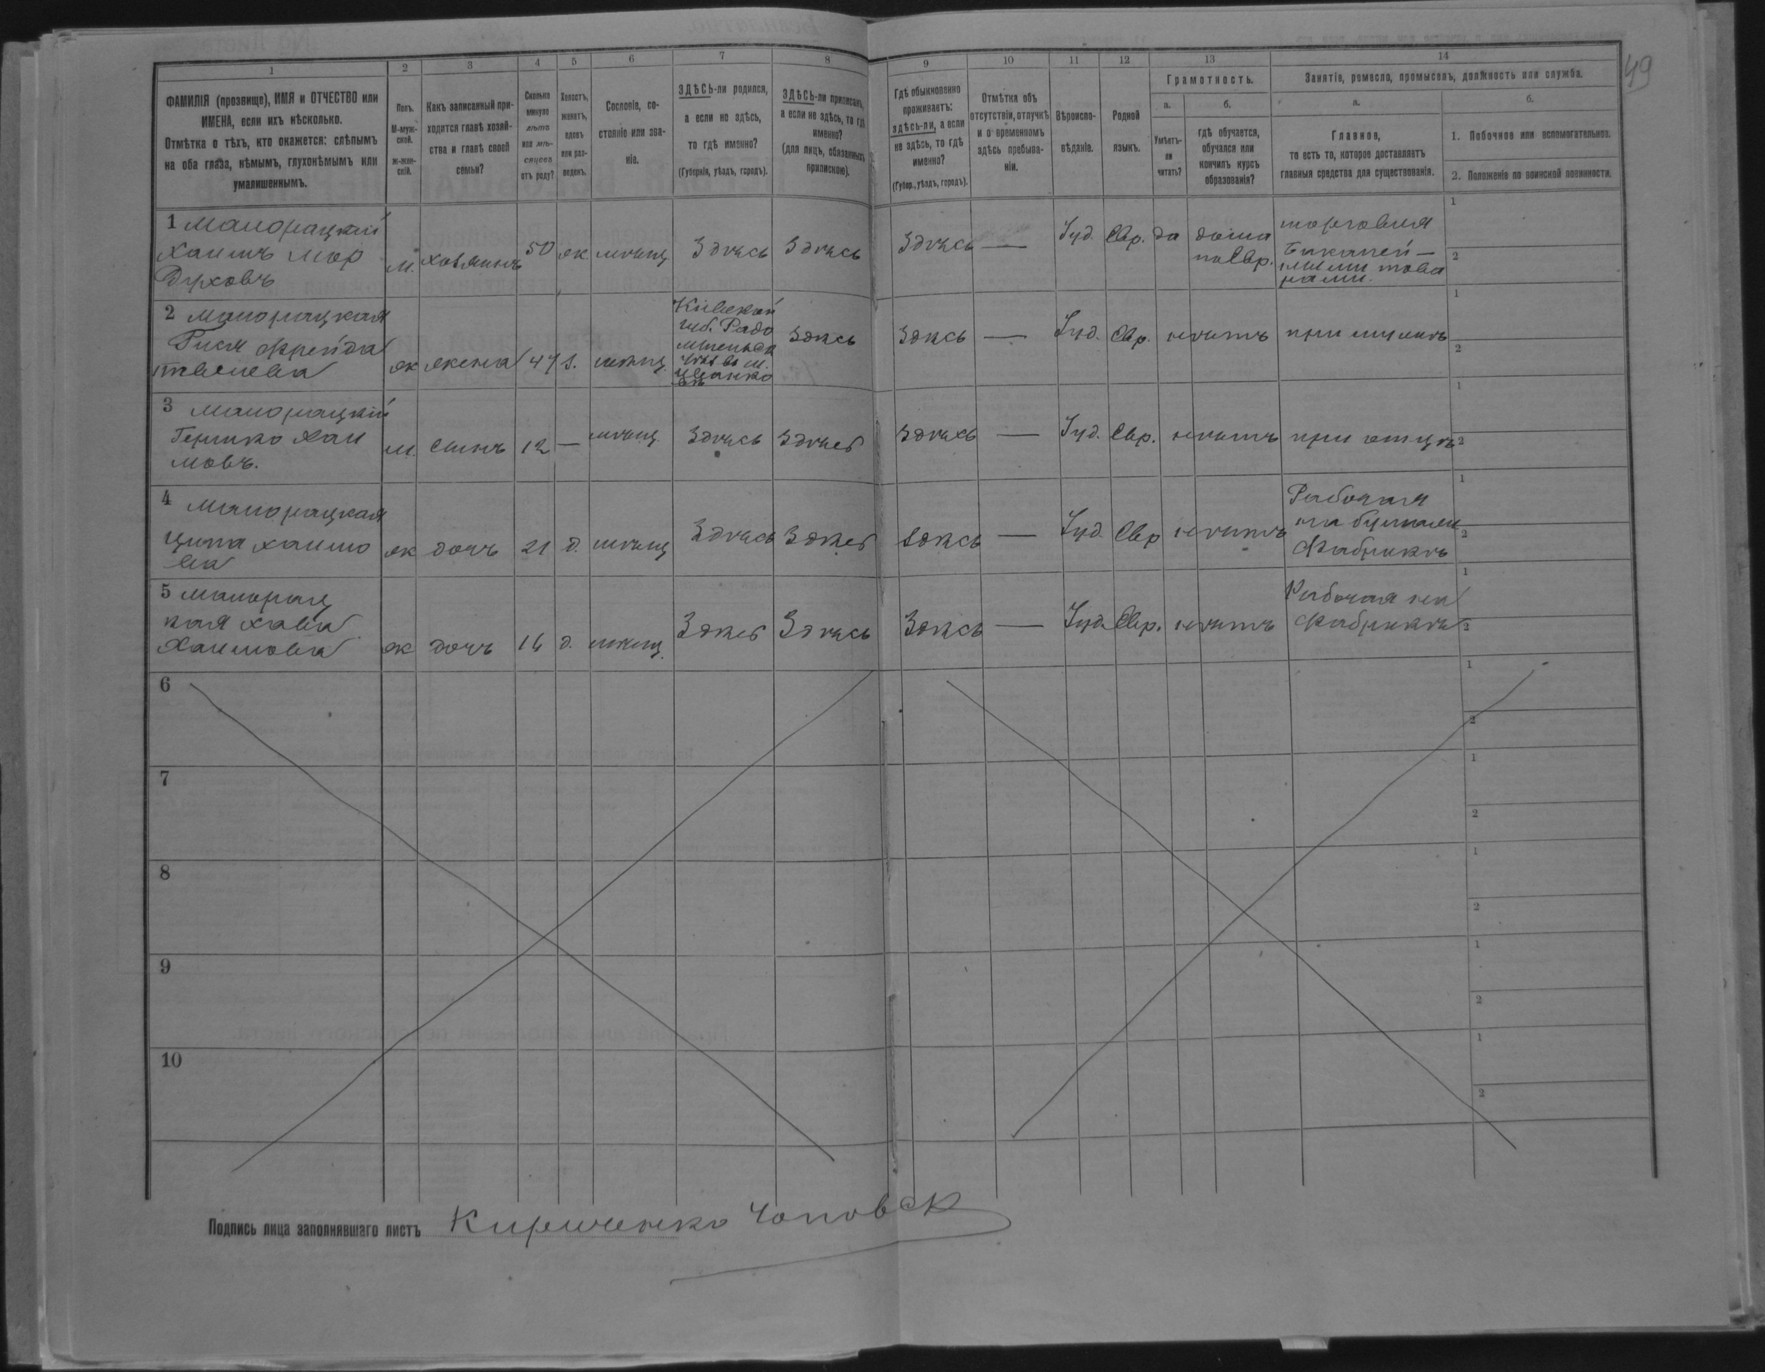 49
1 2 3 4 5 6 7 8 9 10 11 12 13 14
ФАМИЛІЯ (прозвище), ИМЯ и ОТЧЕСТВО или
ИМЕНА, если ихъ нѣсколько.
Отмѣтка о тѣхъ, кто окажется: слѣпымъ
на оба глаза, нѣмымъ, глухонѣмымъ или
умалишеннымъ.
Полъ.
М-муж-
ской.
ж-жен-
скій.
Какъ записанный при-
ходится главѣ хозяй-
ства и главѣ своей
семьи?
Сколько
минуло
лѣтъ
или мѣ-
сяцевъ
отъ роду?
Холостъ,
женатъ,
вдовъ
или раз-
веденъ.
Сословіе, со-
стояніе или зва-
ніе.
ЗДѢСЬ-ли родился,
а если не здѣсь,
то гдѣ именно?
(Губернія, уѣздъ, городъ).
ЗДѢСЬ-ли приписанъ,
а если не здѣсь, то гдѣ
именно?
(для лицъ, обязанныхъ
припискою).
Гдѣ обыкновенно
проживаетъ:
здѣсь-ли, а если
не здѣсь, то гдѣ
именно?
(Губер., уѣздъ, городъ).
Отмѣтка объ
отсутствіи, отлучкѣ
и о временномъ
здѣсь пребыва-
ніи.
Вѣроиспо-
вѣданіе.
Родной
языкъ.
Грамотность.
а.
Умѣетъ-
ли
читать?
б.
гдѣ обучается,
обучался или
кончилъ курсъ
образованія?
Занятіе, ремесло, промыселъ, должность или служба.
а.
Главное,
то есть то, которое доставляетъ
главныя средства для существованія.
б.
1. Побочное или вспомогательное.
2. Положеніе по воинской повинности.
1 Манорацкій
Хаимъ Мор
Духовъ
м. хозяинъ 50 ж мѣщ Здѣсь Здѣсь Здѣсь — Іуд. Евр. да дома
по Евр.
торговля
Бакалей-
ными това
рами.
1
2
2 Манорацкая
Фрейда
ж жена 47 з. мѣщ.
Кіевской
губ. Радо
Здѣсь Здѣсь — Іуд. Евр. нѣтъ при мужѣ
1
2
3 Манорацкій
Гершко Хаи
мовъ.
м. сынъ 12 — мѣщ. Здѣсь Здѣсь Здѣсь — Іуд. Евр. нѣтъ при отцѣ
1
2
4 Манорацкая
Ципа Хаимо
ва
ж дочь 21 д. мѣщ Здѣсь Здѣсь Здѣсь — Іуд Евр нѣтъ
Рабочая
на бумажн
Фабрикѣ
1
2
5 Манорац
кая Хава
Хаимовна
ж дочь 16 д. мѣщ. Здѣсь Здѣсь Здѣсь — Іуд Евр. нѣтъ
Рабочая на
Фабрикѣ
1
2
6
1
2
7
1
2
8
1
2
9
1
2
10
1
2
Подпись лица заполнявшаго листъ